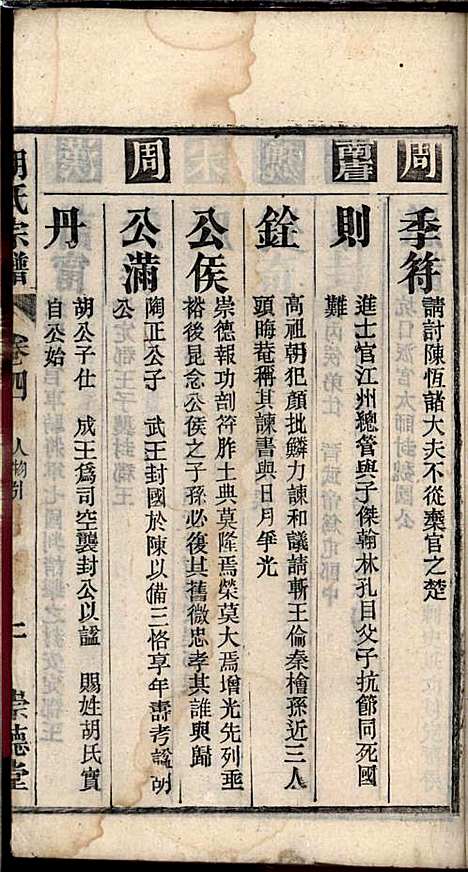 周
季符
請討陳恆諸大夫不從棄官之楚
南唐
則
進士官江州總管與子傑翰林孔目父子抗節同死國
難
銓
高祖朝犯顏批鱗力諫和議請斬王倫秦檜孫近三人
頭晦菴稱其諫書與日月爭光
公侯
崇德報功剖符胙土典莫隆焉榮莫大焉增光先列垂
裕後昆念公侯之子孫必復其舊微忠孝其誰與歸
周
公滿
陶正公子 武王封國於陳以備三恪享年壽考諡胡
公
丹
胡公子仕 成王爲司空襲封公以諡 賜姓胡氏實
自公始
胡氏宗譜
卷四
人物引
二
崇德堂